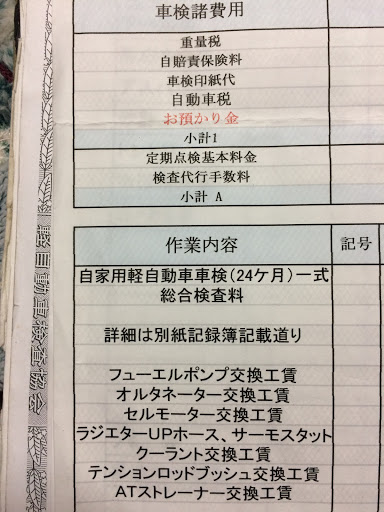 車検諸費用
重量税
自賠責保険料
車検印紙代
自動車税
お預かり金
小計1
定期点検基本料金
検査代行手数料
小計 A
作業内容 記号
自家用軽自動車車検(24ケ月)一式
総合検査料
詳細は別紙記録簿記載道り
フューエルポンプ交換工賃
オルタネーター交換工賃
セルモーター交換工賃
ラジエターUPホース、サーモスタット
クーラント交換工賃
テンションロッドブッシュ交換工賃
ATストレーナー交換工賃
軽自動車検査協会